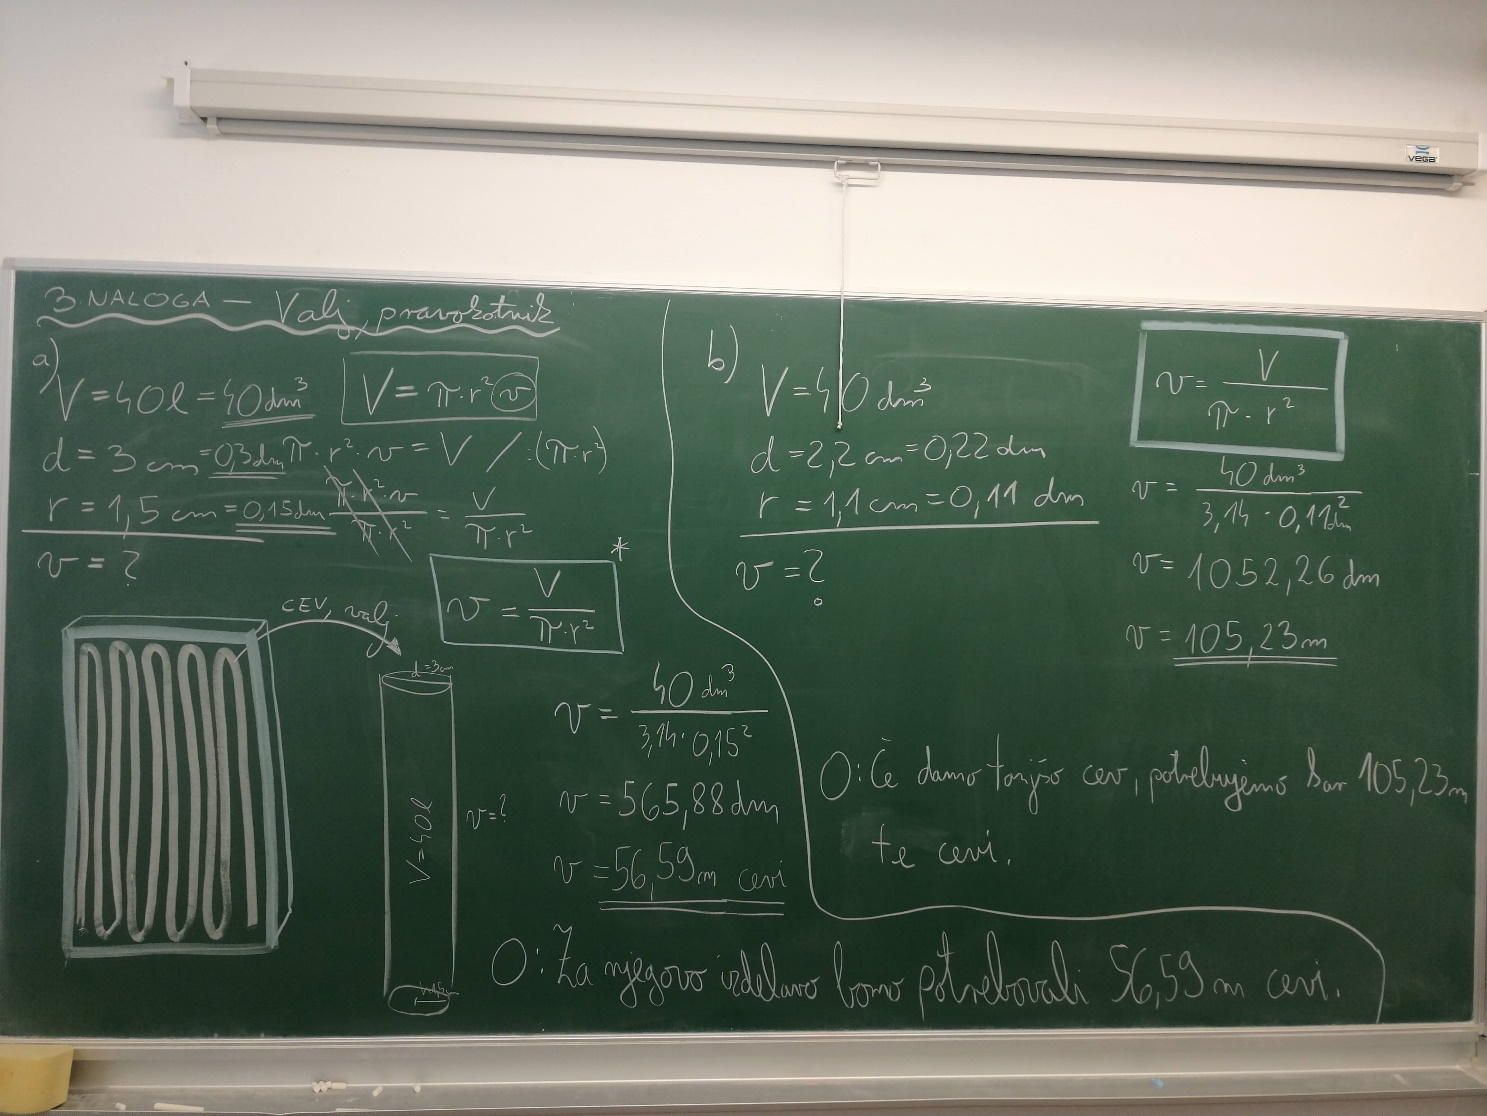 vega
3. NALOGA — Valj, pravokotnik
a)
V = 40l = 40dm³
V = π·r²·v
d = 3 cm = 0,3dm
π·r²·v = V /:(π·r²)
r = 1,5 cm = 0,15dm
π·r²·v / π·r² = V / π·r²
v = ?
*
v = V / π·r²
CEV, valj
d=3cm
V=40l
v=?
v = 40 dm³ / 3,14·0,15²
v = 565,88dm
v = 56,59m cevi
O: Za njegovo izdelavo bomo potrebovali 56,59 m cevi.
b)
V = 40 dm³
d = 2,2 cm = 0,22 dm
r = 1,1 cm = 0,11 dm
v = ?
v = V / π · r²
v = 40 dm³ / 3,14 · 0,11²dm²
v = 1052,26 dm
v = 105,23m
O: Če damo tanjšo cev, potrebujemo kar 105,23m
te cevi.